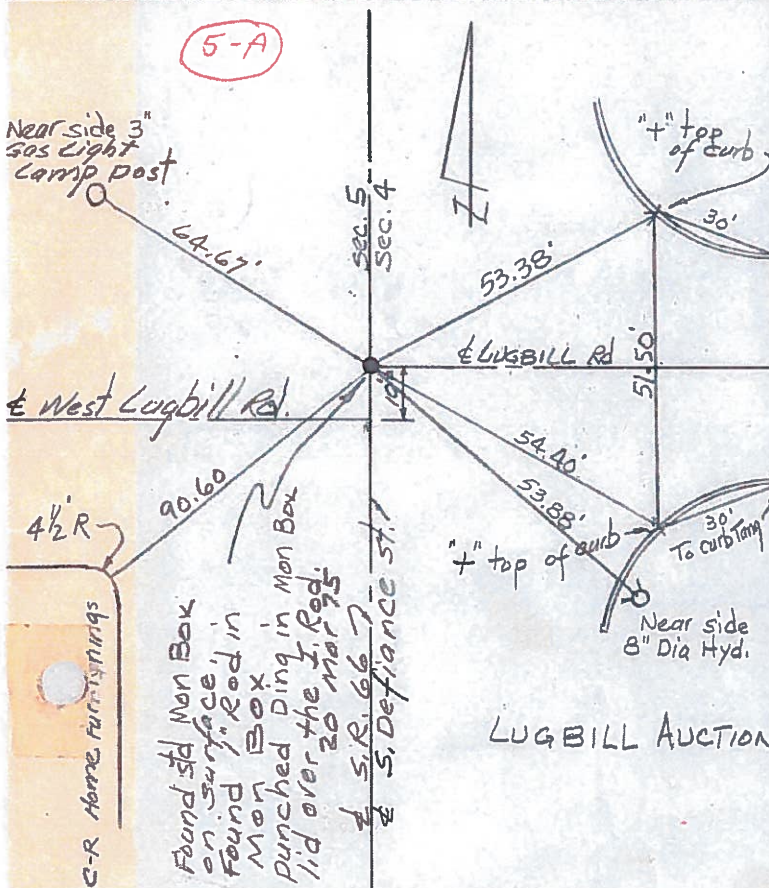 5-A
Near side 3"
Gas Light
Lamp post
"+" top
of curb
30'
64.67'
Sec. 5
Sec. 4
53.38'
℄ LUGBILL Rd
51.50'
℄ West Lugbill Rd.
54.40'
53.88'
90.60
4½' R
"+" top of curb
30'
To curb Tang
Near side
8" Dia Hyd.
LUGBILL AUCTION
C-R Home Furnishings
Found std Mon Box
on surface.
Found 1" Rod in
Mon Box
Punched Ding in Mon Box
lid over the I. Rod.
20 Mar 75
℄ S.R. 66
℄ S. Defiance St.